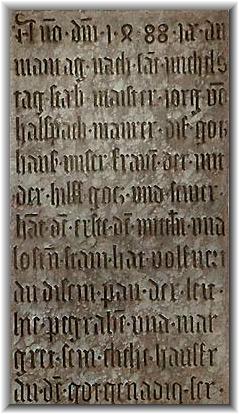 Anno · dm̄ · 1·4·88 · iar · an
mantag · nach · sāt · michels
tag starb maister · iorg · vō
halspach · maurer · diß · gotz
hauß · vnser · frawn · der · mit
der · hilff · gotz · vnd · seiner
hāt · dē · erstē · dē · mittln · vnd
lesten · stain · hat · volfuert
an disem · pau · der · leit ·
hie pegrabē · vnd · mar
gret · sein · elichi · hausfr
au · dē · got · genadig · sei ·